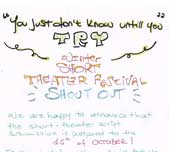 "You just don't know untill you"
TRY
Winter
SHORT
THEATER FESTIVAL
SHOUT OUT
We are happy to announce that
the short-theater script
submission is postponed to the
15th of OCTOBER!